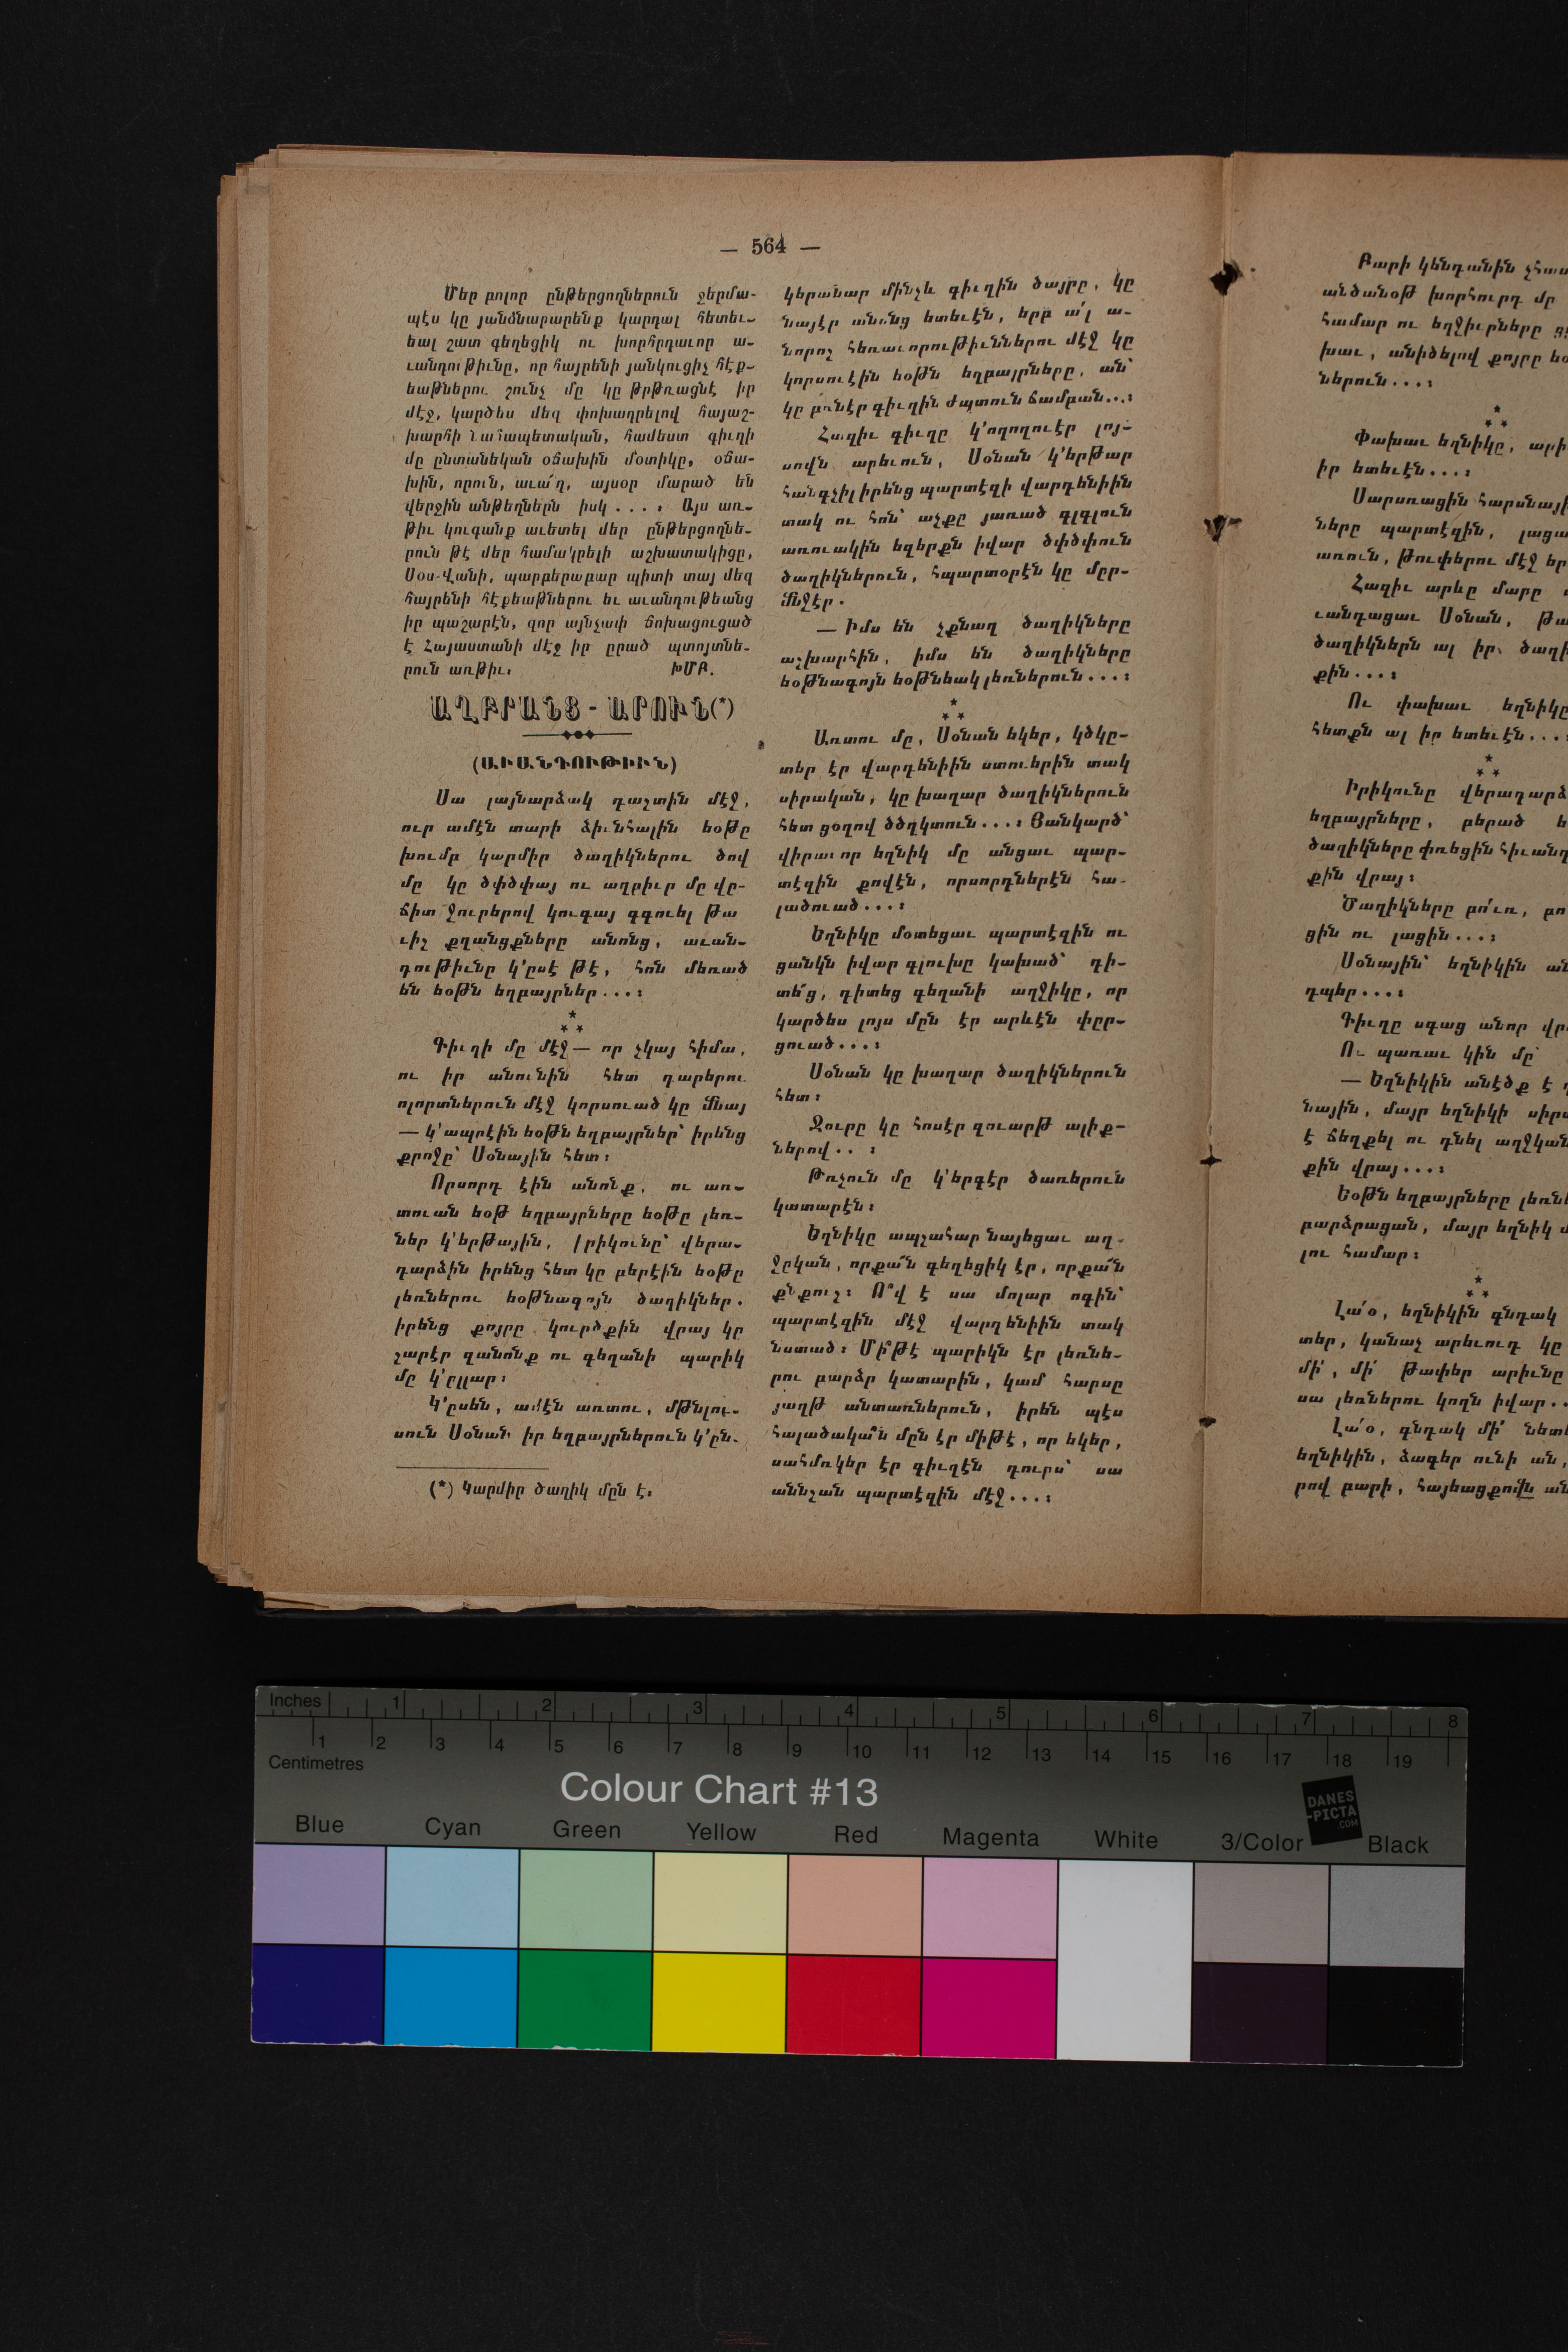 — 564 —
Մեր բոլոր ընթերցողներուն ջերմա-
պէս կը յանձնարարենք կարդալ հետեւ-
եալ շատ գեղեցիկ ու խորհրդաւոր ա-
ւանդութիւնը, որ հայրենի յանկուցիչ հէք-
եաթներու շունչ մը կը թրթռացնէ իր
մէջ, կարծես մեզ փոխադրելով հայաշ-
խարհի նահապետական, համեստ գիւղի
մը ընտանեկան օճախին մօտիկը, օճա-
խին, որուն, աւա՜ղ, այսօր մարած են
վերջին անթեղներն իսկ . . . ։ Այս առ-
թիւ կուգանք աւետել մեր ընթերցողնե-
րուն թէ մեր համակրելի աշխատակիցը,
Սօս-Վանի, պարբերաբար պիտի տայ մեզ
հայրենի հէքեաթներու եւ աւանդութեանց
իր պաշարէն, զոր այնչափ ճոխացուցած
է Հայաստանի մէջ իր ըրած պտոյտնե-
րուն առթիւ։ ԽՄԲ.
ԱՂԲՐԱՆՑ - ԱՐՈՒՆ(*)
(ԱՒԱՆԴՈՒԹԻՒՆ)
Սա լայնարձակ դաշտին մէջ,
ուր ամէն տարի ձիւնհալին եօթը
խումբ կարմիր ծաղիկներու ծով
մը կը ծփծփայ ու աղբիւր մը վը-
ճիտ ջուրերով կուգայ գգուել թա
ւիշ քղանցքները անոնց, աւան-
դութիւնը կ՚ըսէ թէ, հոն մեռած
են եօթն եղբայրներ...։
*
* *
Գիւղի մը մէջ — որ չկայ հիմա,
ու իր անունին հետ դարերու
ոլորտներուն մէջ կորսուած կը մնայ
— կ՚ապրէին եօթն եղբայրներ՝ իրենց
քրոջը՝ Սօնային հետ։
Որսորդ էին անոնք, ու առ-
տուան եօթ եղբայրները եօթը լեռ-
ներ կ՚երթային, իրիկունը՝ վերա-
դարձին իրենց հետ կը բերէին եօթը
լեռներու եօթնագոյն ծաղիկներ.
իրենց քոյրը կուրծքին վրայ կը
շարէր զանոնք ու գեղանի պարիկ
մը կ՚ըլլար։
Կ՚ըսեն, ամէն առտու, մթնլու-
սուն Սօնան իր եղբայրներուն կ՚ըն-
(*) Կարմիր ծաղիկ մըն է։
կերանար մինչև գիւղին ծայրը, կը
նայէր անոնց ետեւէն, երբ ա՛լ ա-
նորոշ հեռաւորութիւններու մէջ կը
կորսուէին եօթն եղբայրները, ան՝
կը բռնէր գիւղին ժպտուն ճամբան...։
Հազիւ գիւղը կ՚ողողուէր լոյ-
սովն արեւուն, Սօնան կ՚երթար
հանգչիլ իրենց պարտէզի վարդենիին
տակ ու հոն՝ աչքը յառած գլգլուն
առուակին եզերքն իվար ծփծփուն
ծաղիկներուն, հպարտօրէն կը մըր-
մնջէր.
— Իմս են չքնաղ ծաղիկները
աշխարհին, իմս են ծաղիկները
եօթնագոյն եօթնեակ լեռներուն...։
*
* *
Առտու մը, Սօնան եկեր, կծկը-
տեր էր վարդենիին ստուերին տակ
սիրական, կը խաղար ծաղիկներուն
հետ ցօղով ծծղկտուն...։ Յանկարծ՝
վիրաւոր եղնիկ մը անցաւ պար-
տէզին քովէն, որսորդներէն հա-
լածուած...։
Եղնիկը մօտեցաւ պարտէզին ու
ցանկն իվար գլուխը կախած՝ դի-
տե՜ց, դիտեց գեղանի աղջիկը, որ
կարծես լոյս մըն էր արևէն փըր-
ցուած...։
Սօնան կը խաղար ծաղիկներուն
հետ։
Ջուրը կը հոսէր զուարթ ալիք-
ներով.. ։
Թռչուն մը կ՚երգէր ծառերուն
կատարէն։
Եղնիկը ապշահար նայեցաւ աղ-
ջըկան, որքա՜ն գեղեցիկ էր, որքա՜ն
քնքուշ։ Ո՞վ է սա մոլար ոգին՝
պարտէզին մէջ վարդենիին տակ
նստած։ Մի՞թէ պարիկն էր լեռնե-
րու բարձր կատարին, կամ հարսը
յաղթ անտառներուն, իրեն պէս
հալածակա՞ն մըն էր միթէ, որ եկեր,
սահմռկեր էր գիւղէն դուրս՝ սա
աննշան պարտէզին մէջ...։
Բարի կենդանին
անծանօթ խորհուրդ մը
համար ու եղջիւրները
խաւ, անիծելով քոյրը
ներուն...։
*
* *
Փախաւ եղնիկը,
իր ետեւէն...։
Սարսռացին
ները պարտէզին,
առուն, թուփերու մէջ
Հազիւ արևը մարը
ւանդացաւ Սօնան,
ծաղիկներն ալ իր
քին...։
Ու փախաւ եղնիկը
հետքն ալ իր ետեւէն...։
*
* *
Իրիկունը
եղբայրները, բերած
ծաղիկները փռեցին
քին վրայ։
Ծաղիկները
ցին ու լացին...։
Սօնային՝ եղնիկին
դպեր...։
Գիւղը սգաց անոր
Ու պառաւ կին մը
— Եղնիկին անէծք է
նային, մայր եղնիկի
է ճեղքել ու դնել
քին վրայ...։
Եօթն եղբայրները
բարձրացան, մայր եղնիկ
լու համար։
*
* *
Լա՛օ, եղնիկին գնդակ
տեր, կանաչ արեւուդ կը
մի՛, մի՛ թափեր արիւնը
սա լեռներու կողն իվար
Լա՛օ, գնդակ մի՛
եղնիկին, ձագեր ունի ան,
րով բարի, հայեացքովն
Inches 1 2 3 4 5 6 7 8
1 2 3 4 5 6 7 8 9 10 11 12 13 14 15 16 17 18 19
Centimetres
Colour Chart #13
DANES
-PICTA
.COM
Blue Cyan Green Yellow Red Magenta White 3/Color Black